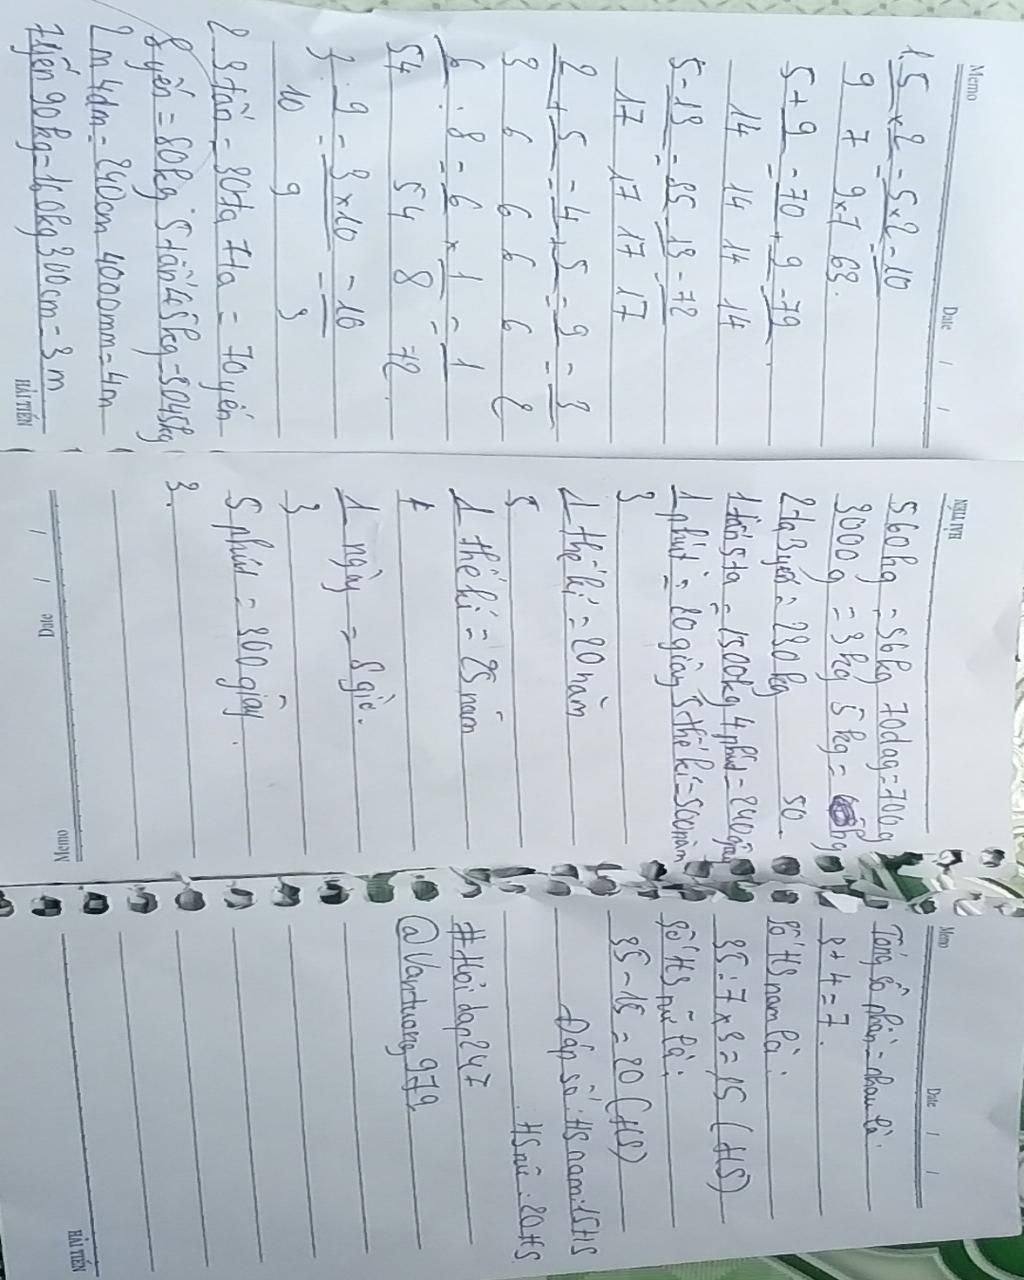 Memo
Date / /
1. 5 × 2 = 5×2 = 10
9 7 9×7 63.
5 + 9 = 70 + 9 = 79
14 14 14 14
5 - 13 = 85 13 - 72
17 17 17 17
2 + 5 = 4 + 5 = 9 = 3
3 6 6 6 6 2
6 : 8 = 6 × 1 = 1
54 54 8 72.
3 : 9 = 3×10 = 10
10 9 3
2 3 tấn = 30 tạ 7 tạ = 70 yến
8 yến = 80kg 5 tấn 45kg = 5045kg
2m 4dm = 240cm 4000mm = 4m
7 yến 90kg = 160kg 300cm = 3m
HẢI TIẾN
HẢI TIẾN
560hg = 56kg 70dag = 700g
3000g = 3kg 5kg = hg
2 tạ 3 yến = 230kg 50
1 tấn 5 tạ = 1500kg 4 phút = 240 giây
1 phút = 20 giây 5 thế kỉ = 500 năm
3
1 thế kỉ = 20 năm
5
1 thế kỉ = 25 năm
4
1 ngày = 8 giờ.
3
5 phút = 300 giây.
3.
Date / /
Memo
Memo
Date / /
Tổng số phần = nhau là:
3 + 4 = 7.
Số HS nam là:
35 : 7 × 3 = 15 (HS)
Số HS nữ là:
35 - 15 = 20 (HS)
Đáp số: HS nam: 15 HS
HS nữ: 20 HS.
#Hoidap247
@Vantuong979
HẢI TIẾN